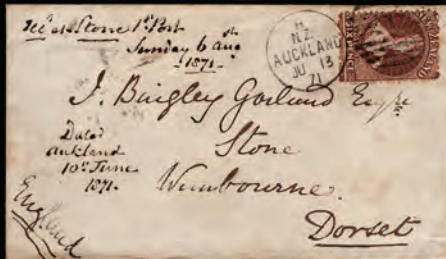 Recd at Stone 1st Post
Sunday 6th Aug
1871.
N.Z.
AUCKLAND
JU 13
71
NEW ZEALAND
SIXPENCE
J. Bingley Garland Esqre
Stone
Wimbourne.
Dorset
Dated
Auckland
10th June
1871.
England